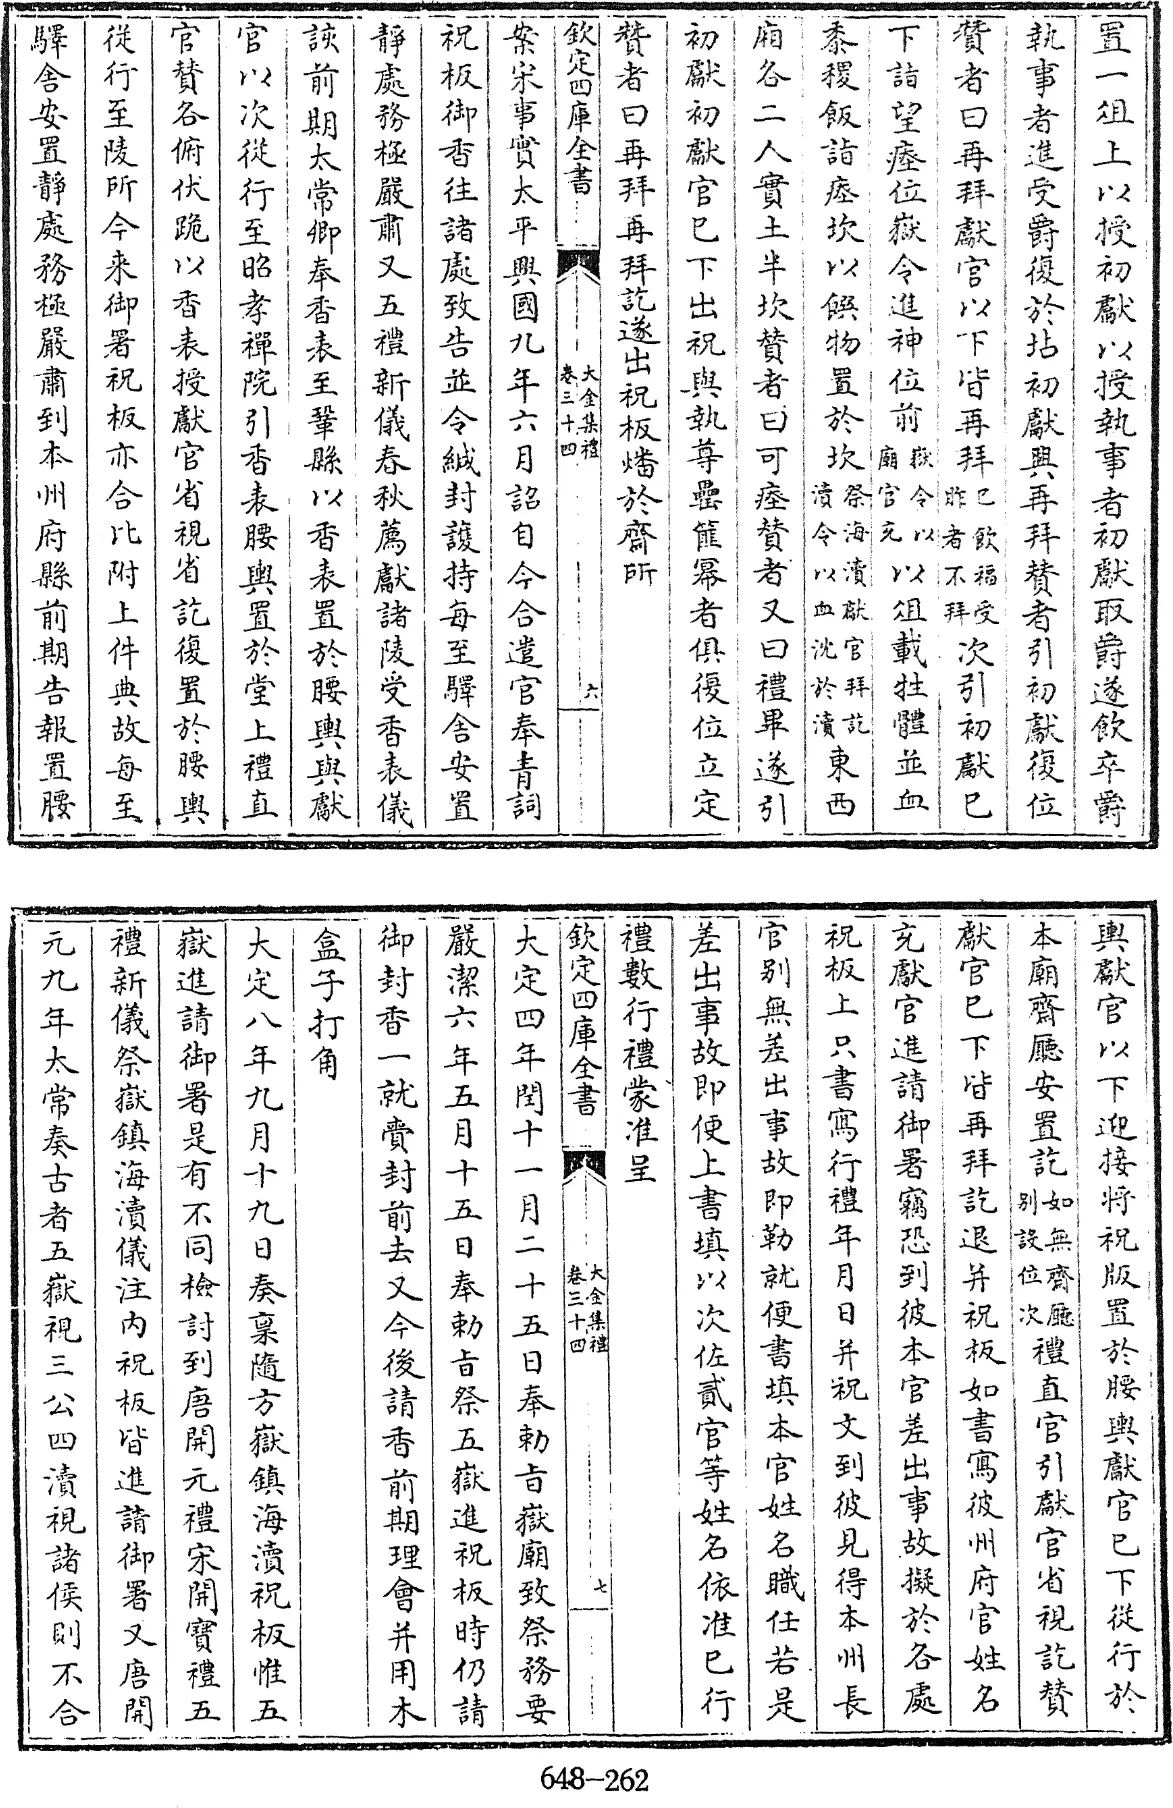 置一俎上以授初獻以授執事者初獻取爵遂飲卒爵
執事者進受爵復於坫初獻興再拜贊者引初獻復位
贊者曰再拜獻官以下皆再拜已飲福受胙者不拜次引初獻已
下詣望瘞位嶽令進神位前嶽令以廟官充以俎載牲體並血
黍稷飯詣瘞坎以饌物置於坎祭海瀆獻官拜訖瀆令以血沈於瀆東西
廂各二人實土半坎贊者曰可瘞贊者又曰禮畢遂引
初獻初獻官已下出祝與執尊罍篚冪者俱復位立定
贊者曰再拜再拜訖遂出祝板燔於齋所
欽定四庫全書
大金集禮
卷三十四
六
案宋事實太平興國九年六月詔自今合遣官奉青詞
祝板御香往諸處致告並令緘封護持每至驛舍安置
靜處務極嚴肅又五禮新儀春秋薦獻諸陵受香表儀
該前期太常卿奉香表至鞏縣以香表置於腰輿與獻
官以次從行至昭孝禪院引香表腰輿置於堂上禮直
官賛各俯伏跪以香表授獻官省視省訖復置於腰輿
從行至陵所今来御署祝板亦合比附上件典故每至
驛舍安置靜處務極嚴肅到本州府縣前期告報置腰
輿獻官以下迎接將祝版置於腰輿獻官已下從行於
本廟齋廳安置訖如無齋廳別設位次禮直官引獻官省視訖贊
獻官已下皆再拜訖退并祝板如書寫彼州府官姓名
充獻官進請御署竊恐到彼本官差出事故擬於各處
祝板上只書寫行禮年月日并祝文到彼見得本州長
官別無差出事故即勒就便書填本官姓名職任若是
差出事故即便上書填以次佐貳官等姓名依准已行
禮數行禮蒙准呈
欽定四庫全書
大金集禮
卷三十四
七
大定四年閏十一月二十五日奉勅㫖嶽廟致祭務要
嚴潔六年五月十五日奉勅㫖祭五嶽進祝板時仍請
御封香一就賫封前去又今後請香前期理會并用木
盒子打角
大定八年九月十九日奏稟隨方嶽鎮海瀆祝板惟五
嶽進請御署是有不同檢討到唐開元禮宋開寶禮五
禮新儀祭嶽鎮海瀆儀注内祝板皆進請御署又唐開
元九年太常奏古者五嶽視三公四瀆視諸侯則不合
648-262